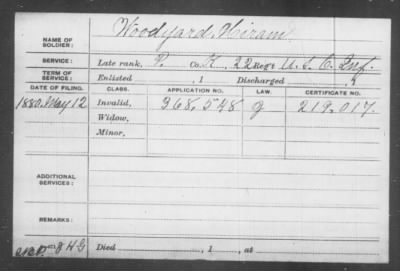 NAME OF SOLDIER: Woodyard, Hiram
SERVICE: Late rank, P. Co. K, 22 Reg't U.S.C. Inf.
TERM OF SERVICE: Enlisted , 1 Discharged , 1
DATE OF FILING. CLASS. APPLICATION NO. LAW. CERTIFICATE NO.
1880, May 12 Invalid, 368,548 J 219.017.
Widow,
Minor,
ADDITIONAL SERVICES:
REMARKS:
Died , 1 , at